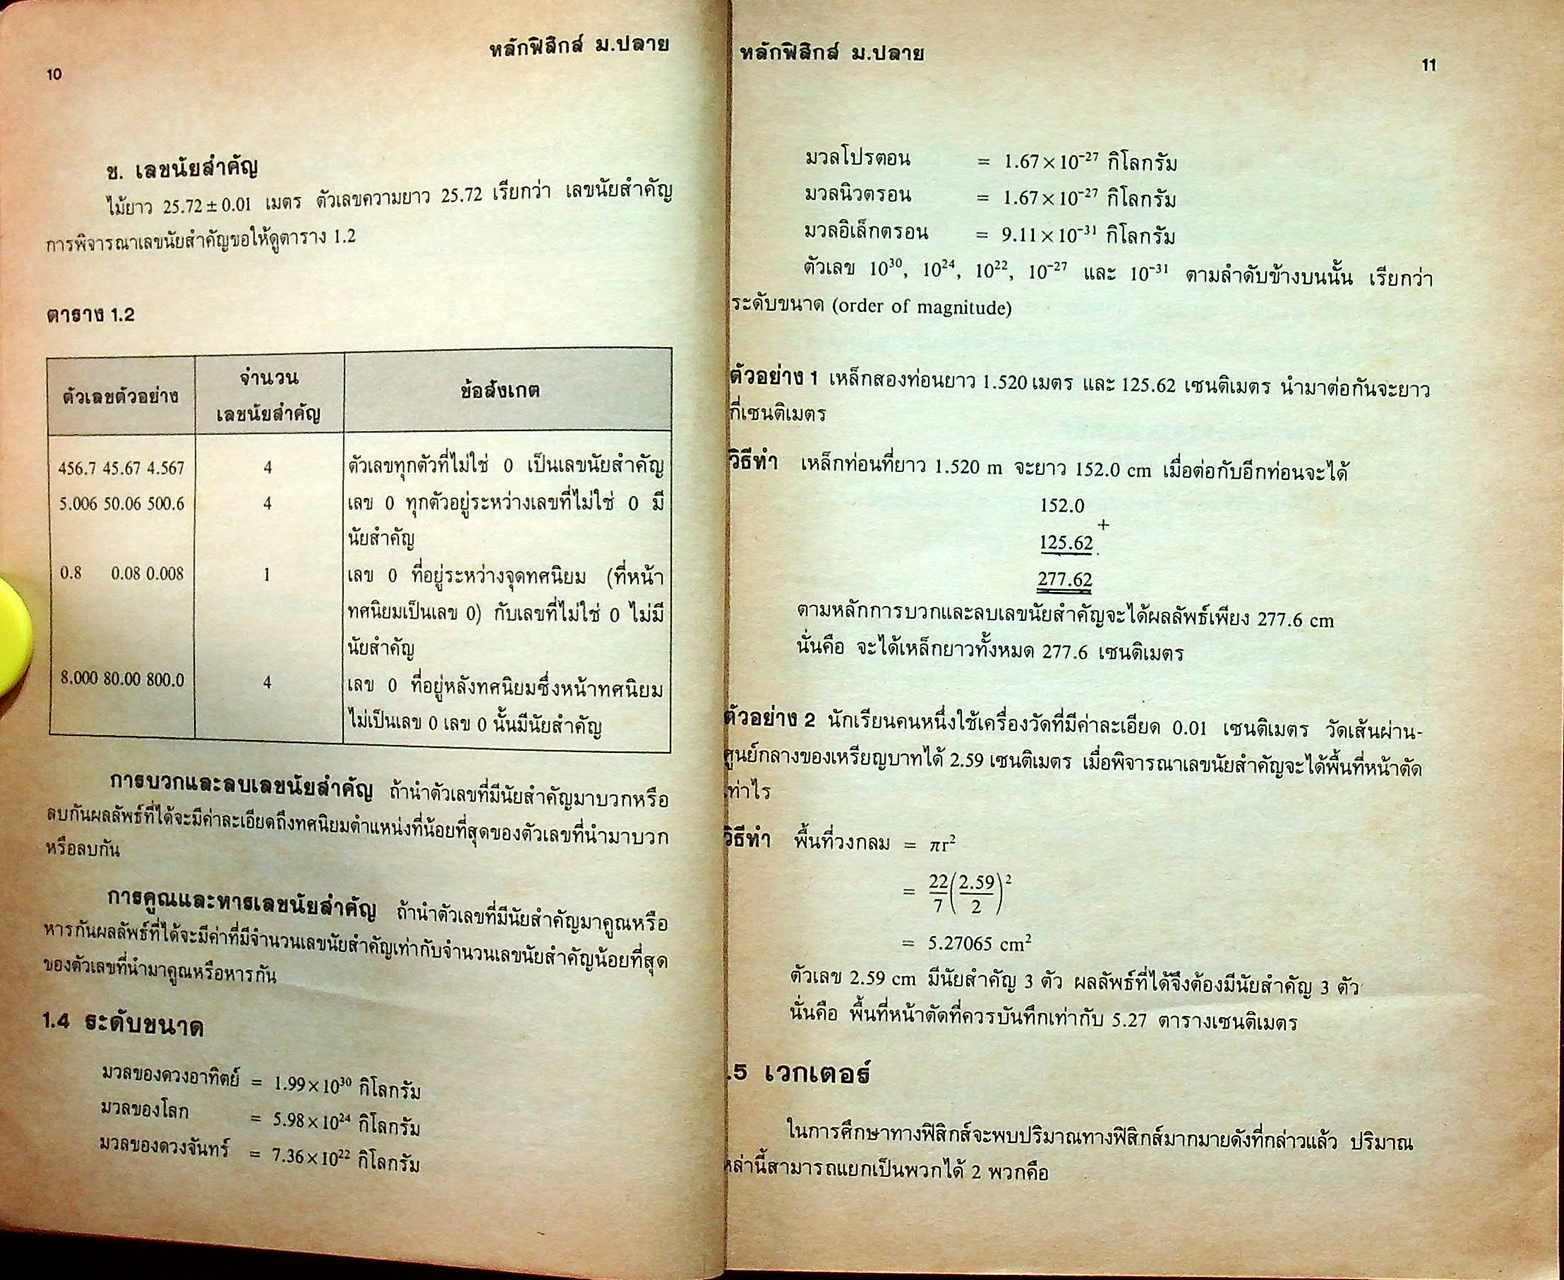 10
หลักฟิสิกส์ ม.ปลาย
ช. เลขนัยสำคัญ
ไม้ยาว 25.72 ± 0.01 เมตร ตัวเลขความยาว 25.72 เรียกว่า เลขนัยสำคัญ
การพิจารณาเลขนัยสำคัญขอให้ดูตาราง 1.2
ตาราง 1.2
ตัวเลขตัวอย่าง
จำนวน
เลขนัยสำคัญ
ข้อสังเกต
456.7 45.67 4.567 4 ตัวเลขทุกตัวที่ไม่ใช่ 0 เป็นเลขนัยสำคัญ
5.006 50.06 500.6 4 เลข 0 ทุกตัวอยู่ระหว่างเลขที่ไม่ใช่ 0 มี
นัยสำคัญ
0.8 0.08 0.008 1 เลข 0 ที่อยู่ระหว่างจุดทศนิยม (ที่หน้า
ทศนิยมเป็นเลข 0) กับเลขที่ไม่ใช่ 0 ไม่มี
นัยสำคัญ
8.000 80.00 800.0 4 เลข 0 ที่อยู่หลังทศนิยมซึ่งหน้าทศนิยม
ไม่เป็นเลข 0 เลข 0 นั้นมีนัยสำคัญ
การบวกและลบเลขนัยสำคัญ ถ้านำตัวเลขที่มีนัยสำคัญมาบวกหรือ
ลบกันผลลัพธ์ที่ได้จะมีค่าละเอียดถึงทศนิยมตำแหน่งที่น้อยที่สุดของตัวเลขที่นำมาบวก
หรือลบกัน
การคูณและหารเลขนัยสำคัญ ถ้านำตัวเลขที่มีนัยสำคัญมาคูณหรือ
หารกันผลลัพธ์ที่ได้จะมีค่าที่มีจำนวนเลขนัยสำคัญเท่ากับจำนวนเลขนัยสำคัญน้อยที่สุด
ของตัวเลขที่นำมาคูณหรือหารกัน
1.4 ระดับขนาด
มวลของดวงอาทิตย์ = 1.99×10³⁰ กิโลกรัม
มวลของโลก = 5.98×10²⁴ กิโลกรัม
มวลของดวงจันทร์ = 7.36×10²² กิโลกรัม
หลักฟิสิกส์ ม.ปลาย
11
มวลโปรตอน = 1.67×10⁻²⁷ กิโลกรัม
มวลนิวตรอน = 1.67×10⁻²⁷ กิโลกรัม
มวลอิเล็กตรอน = 9.11×10⁻³¹ กิโลกรัม
ตัวเลข 10³⁰, 10²⁴, 10²², 10⁻²⁷ และ 10⁻³¹ ตามลำดับข้างบนนั้น เรียกว่า
ระดับขนาด (order of magnitude)
ตัวอย่าง 1 เหล็กสองท่อนยาว 1.520 เมตร และ 125.62 เซนติเมตร นำมาต่อกันจะยาว
กี่เซนติเมตร
วิธีทำ เหล็กท่อนที่ยาว 1.520 m จะยาว 152.0 cm เมื่อต่อกับอีกท่อนจะได้
152.0
+
125.62
277.62
ตามหลักการบวกและลบเลขนัยสำคัญจะได้ผลลัพธ์เพียง 277.6 cm
นั่นคือ จะได้เหล็กยาวทั้งหมด 277.6 เซนติเมตร
ตัวอย่าง 2 นักเรียนคนหนึ่งใช้เครื่องวัดที่มีค่าละเอียด 0.01 เซนติเมตร วัดเส้นผ่าน-
ศูนย์กลางของเหรียญบาทได้ 2.59 เซนติเมตร เมื่อพิจารณาเลขนัยสำคัญจะได้พื้นที่หน้าตัด
เท่าไร
วิธีทำ พื้นที่วงกลม = πr²
= 22/7 (2.59/2)²
= 5.27065 cm²
ตัวเลข 2.59 cm มีนัยสำคัญ 3 ตัว ผลลัพธ์ที่ได้จึงต้องมีนัยสำคัญ 3 ตัว
นั่นคือ พื้นที่หน้าตัดที่ควรบันทึกเท่ากับ 5.27 ตารางเซนติเมตร
.5 เวกเตอร์
ในการศึกษาทางฟิสิกส์จะพบปริมาณทางฟิสิกส์มากมายดังที่กล่าวแล้ว ปริมาณ
เหล่านี้สามารถแยกเป็นพวกได้ 2 พวกคือ